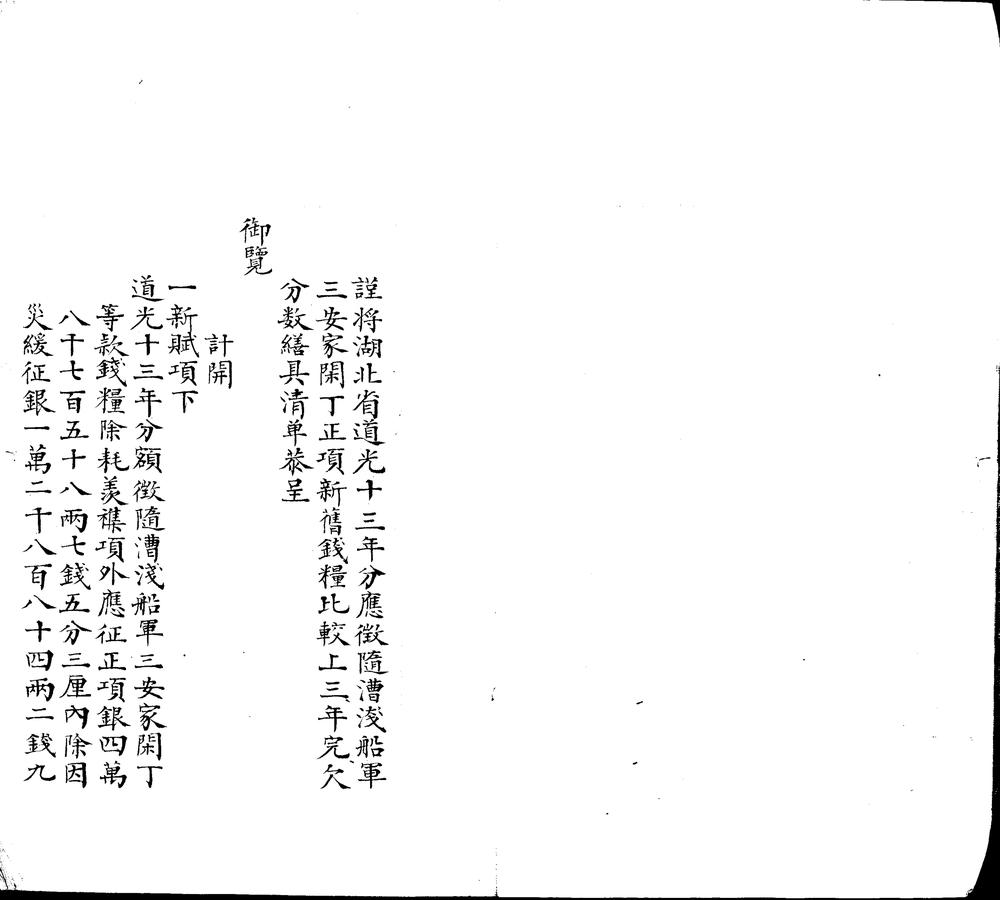 謹将湖北省道光十三年分應徵隨漕淺船軍
三安家閑丁正項新舊錢糧比較上三年完欠
分数繕具清单恭呈
御覽
計開
一新賦項下
道光十三年分額徵隨漕淺船軍三安家閑丁
等款錢糧除耗羨襍項外應征正項銀四萬
八千七百五十八兩七錢五分三厘內除因
災緩征銀一萬二千八百八十四兩二錢九